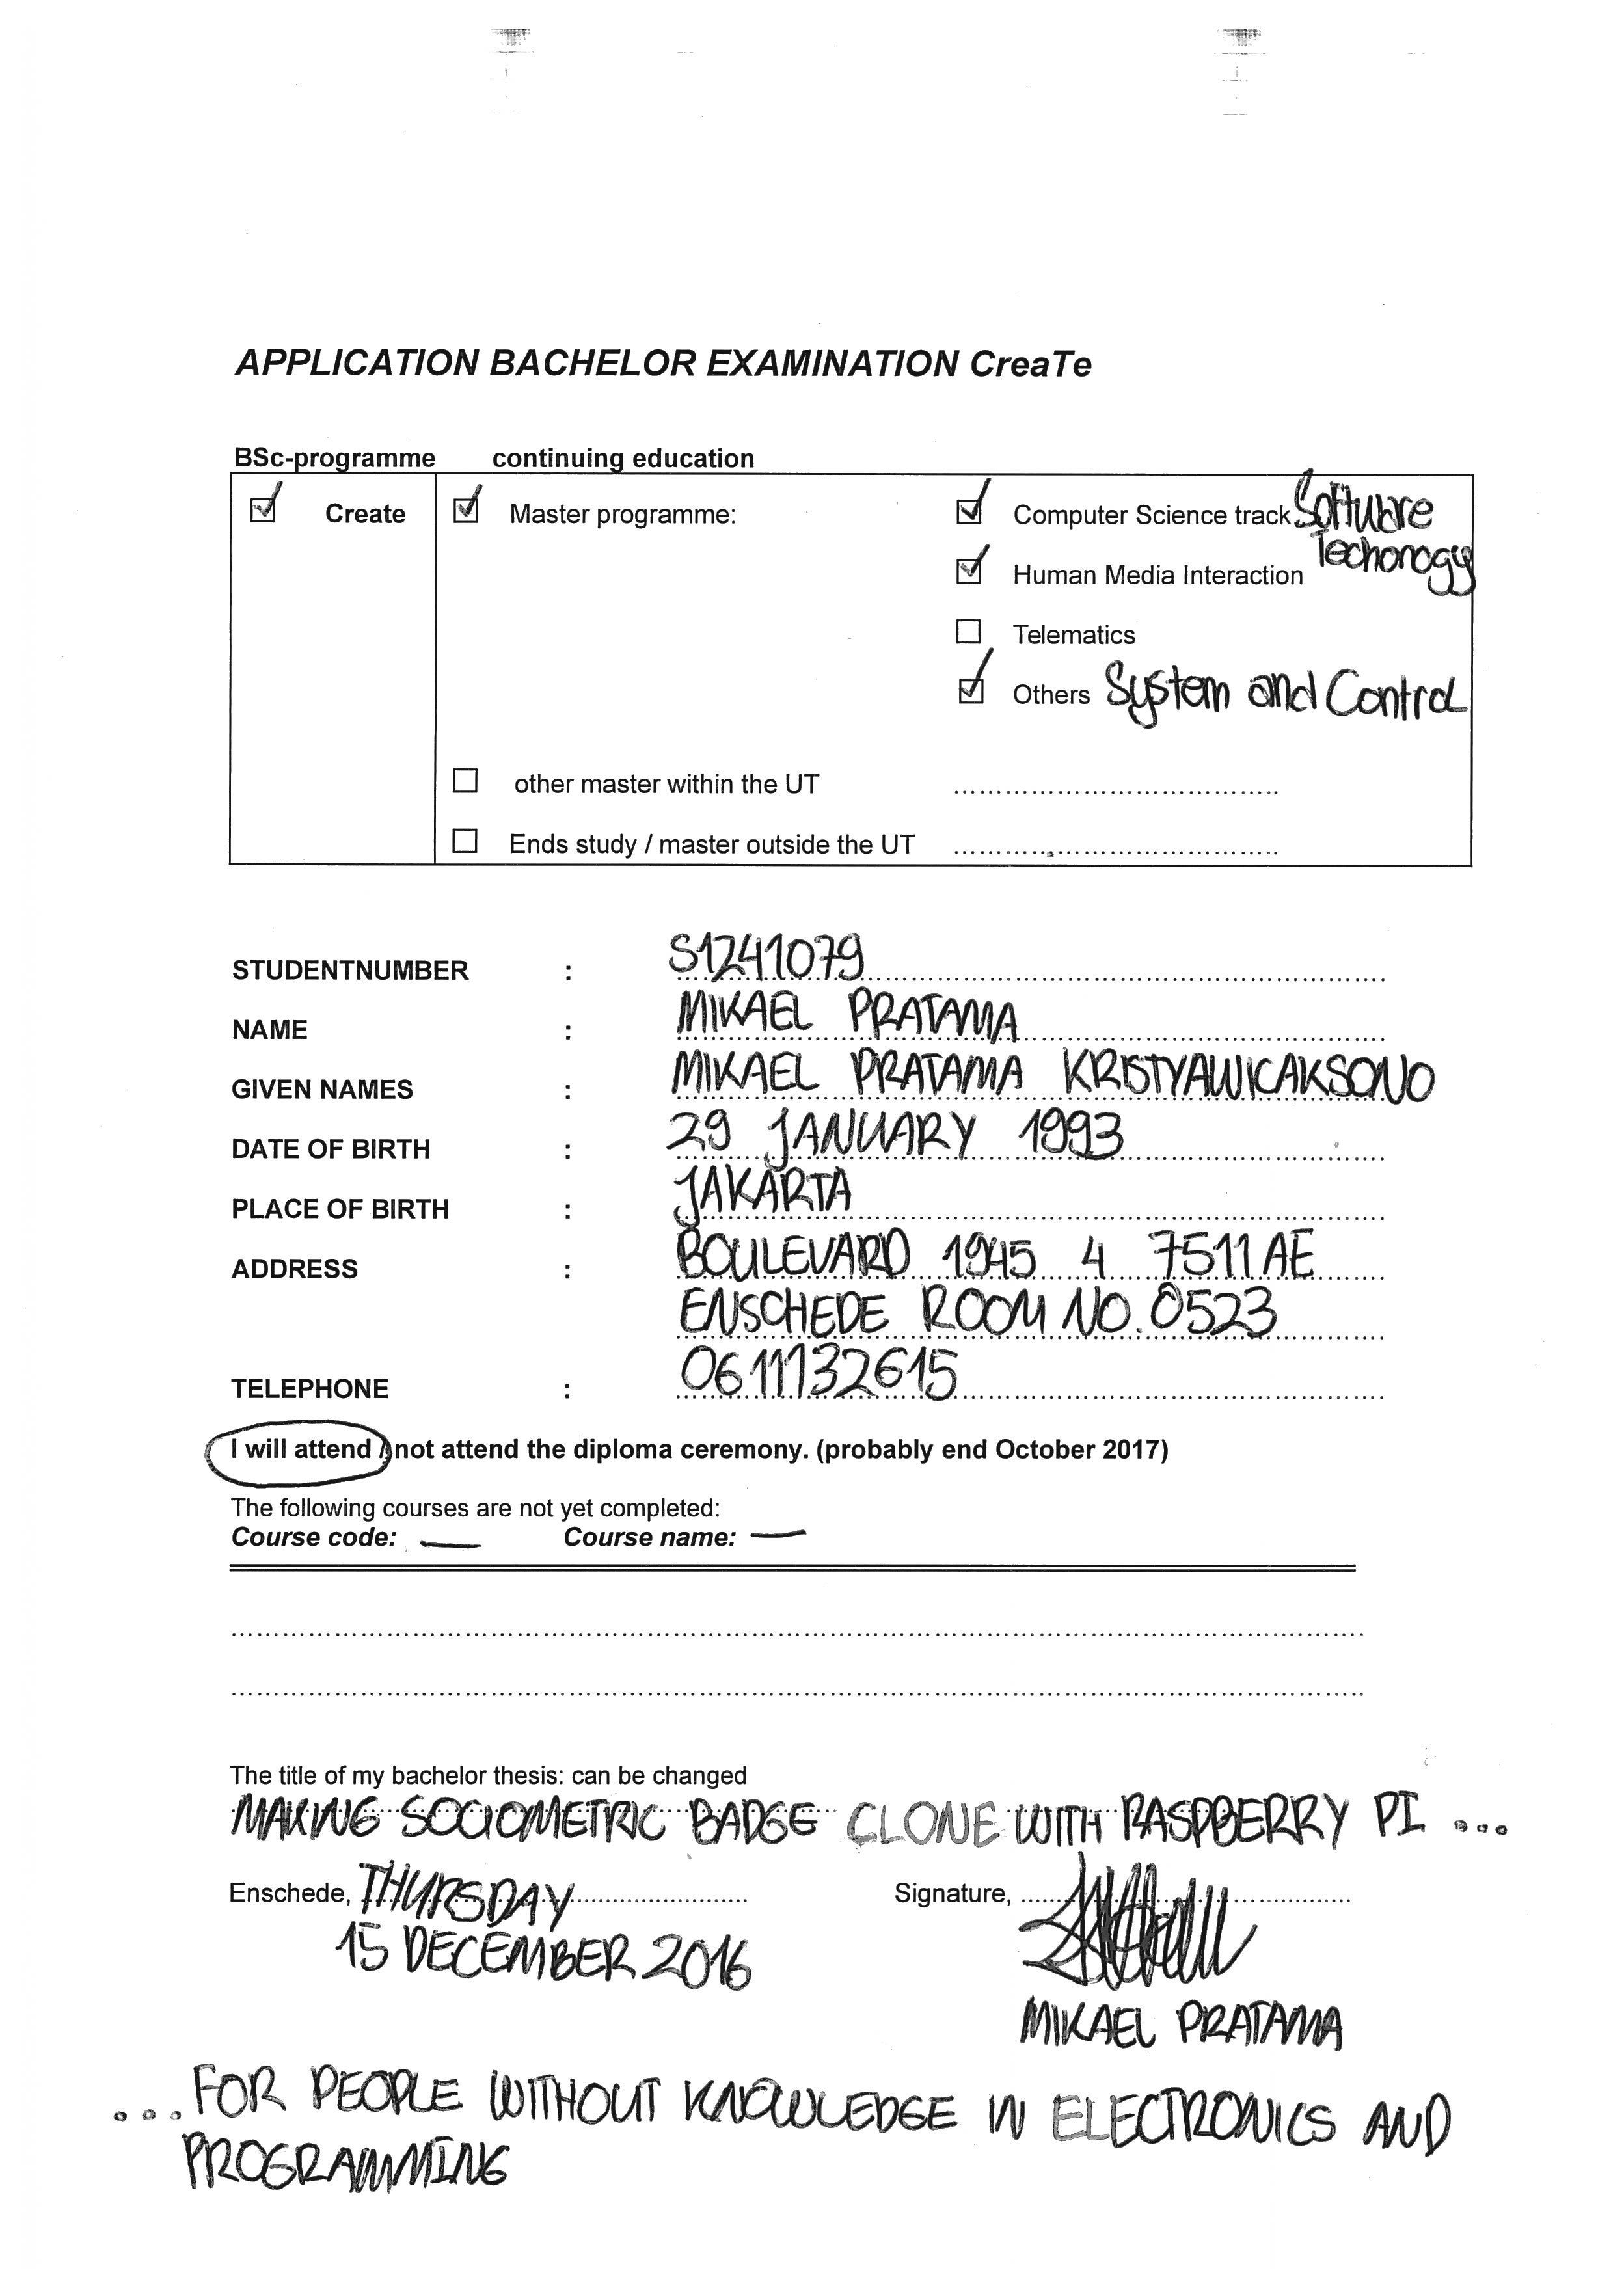 APPLICATION BACHELOR EXAMINATION CreaTe
BSc-programme continuing education
Create Master programme: Computer Science track Software
Techonogy
Human Media Interaction
Telematics
Others System and Control
other master within the UT ......................................
Ends study / master outside the UT ......................................
STUDENTNUMBER : S1241079
NAME : MIKAEL PRATAMA
GIVEN NAMES : MIKAEL PRATAMA KRISTYAWICAKSONO
DATE OF BIRTH : 29 JANUARY 1993
PLACE OF BIRTH : JAKARTA
ADDRESS : BOULEVARD 1945 4 7511AE
ENSCHEDE ROOM NO. 0523
TELEPHONE : 0611132615
I will attend / not attend the diploma ceremony. (probably end October 2017)
The following courses are not yet completed:
Course code: — Course name: —
The title of my bachelor thesis: can be changed
MAKING SOCIOMETRIC BADGE CLONE WITH RASPBERRY PI ...
Enschede, THURSDAY Signature,
15 DECEMBER 2016
MIKAEL PRATAMA
...FOR PEOPLE WITHOUT KNOWLEDGE IN ELECTRONICS AND
PROGRAMMING